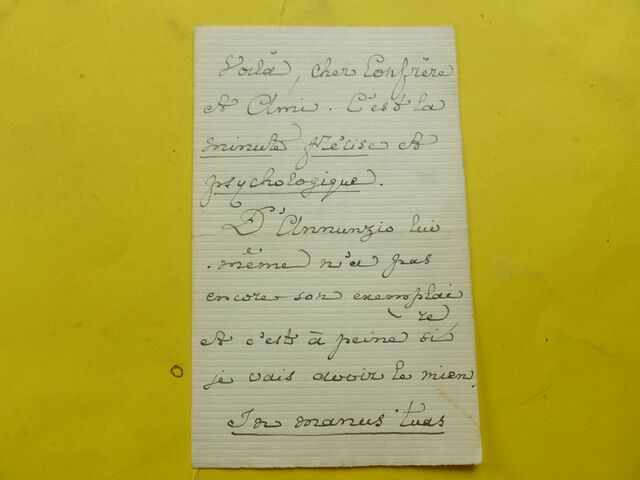 Voilà, cher Confrère
et Ami. C'est la
minute précise et
psychologique.
D'Annunzio lui
-même n'a pas
encore son exemplai
re
et c'est à peine si
je vais avoir le mien.
In manus tuas